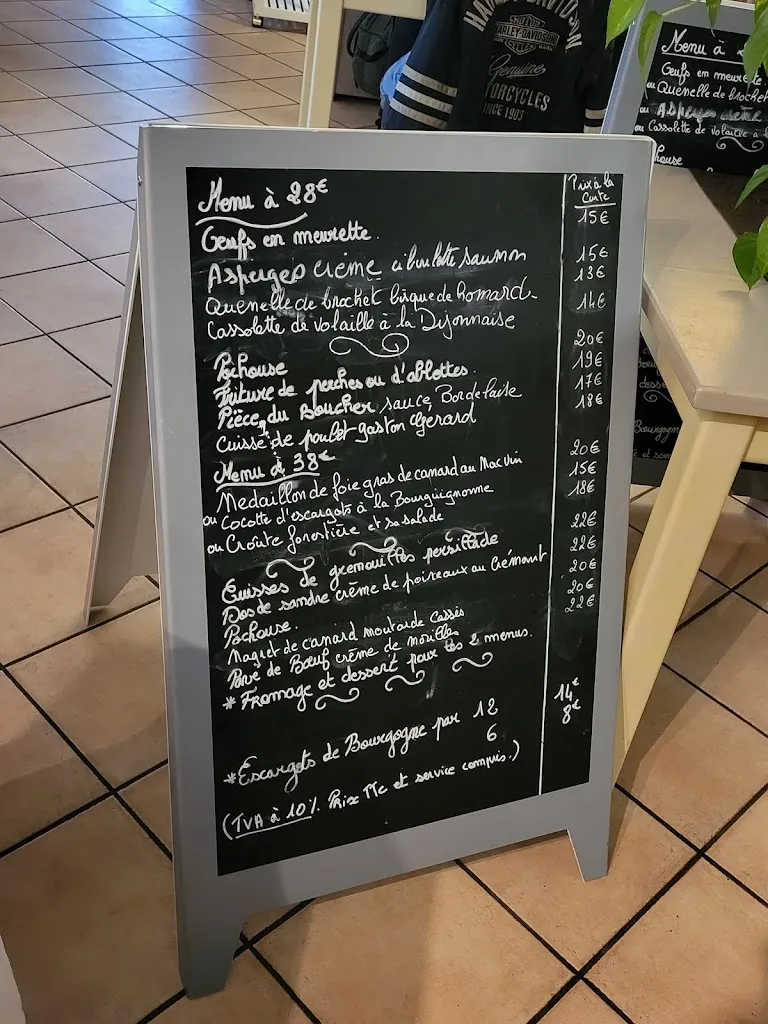 HARLEY-DAVIDSON
MOTOR
HARLEY-DAVIDSON
CYCLES
Genuine
MOTORCYCLES
SINCE 1903
Menu à
Oeufs en meurette
ou Quenelle de brochet
ou Asperges crème
ou Cassolette de volaille à l
Menu à 28€
Prix à la
Carte
Oeufs en meurette. 15€
Asperges crème ciboulette saumon 15€
Quenelle de brochet bisque de homard. 13€
Cassolette de volaille à la Dijonnaise 14€
Pochouse 20€
Friture de perches ou d'ablettes. 19€
Pièce du Boucher sauce Bordelaise 17€
Cuisse de poulet gaston Gérard 18€
Menu à 38€
Medaillon de foie gras de canard au Macvin 20€
ou Cocotte d'escargots à la Bourguignonne 15€
ou Croûte forestière et sa salade 18€
Cuisses de grenouilles persillade 22€
Dos de sandre crème de poireaux au Crémant 22€
Pochouse. 20€
Magret de canard moutarde Cassis 20€
Pavé de Boeuf crème de morilles 22€
* Fromage et dessert pour les 2 menus.
*Escargots de Bourgogne par 12 14€
6 8€
(TVA à 10%. Prix TTc et service compris.)